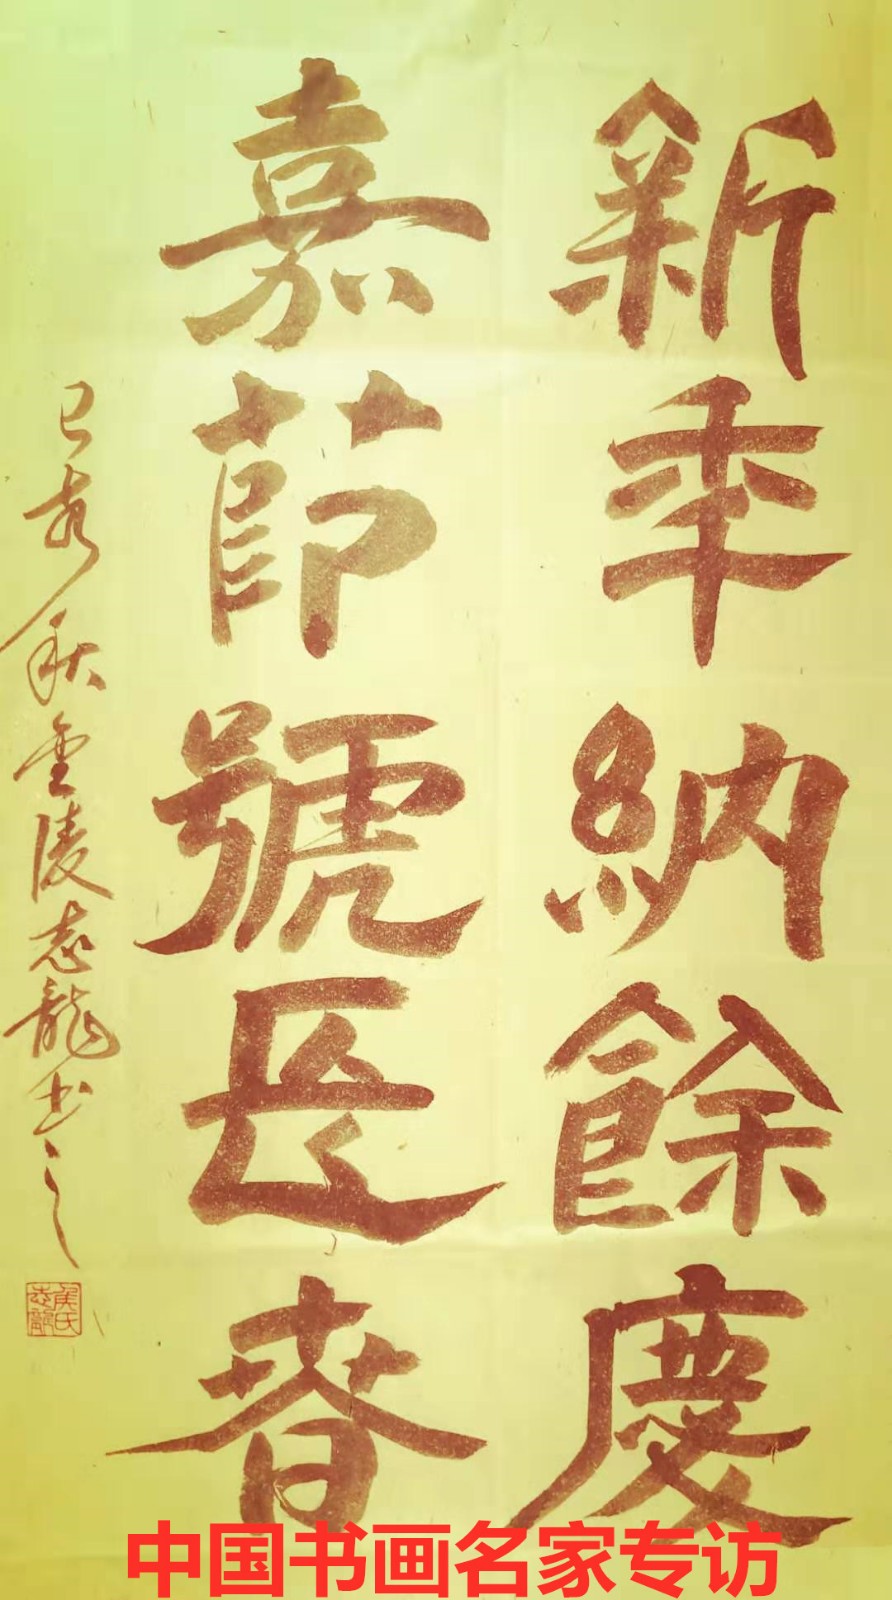 新年納餘慶
嘉節號長春
己亥秋金陵志龍书之
侯氏志龍
中国书画名家专访